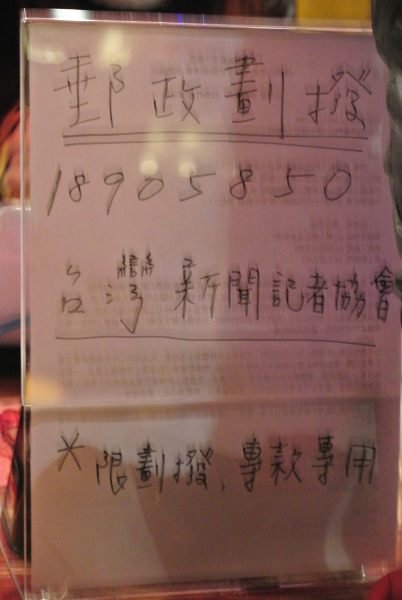 郵政劃撥
18905850
台灣新聞記者協會
*限劃撥,專款專用